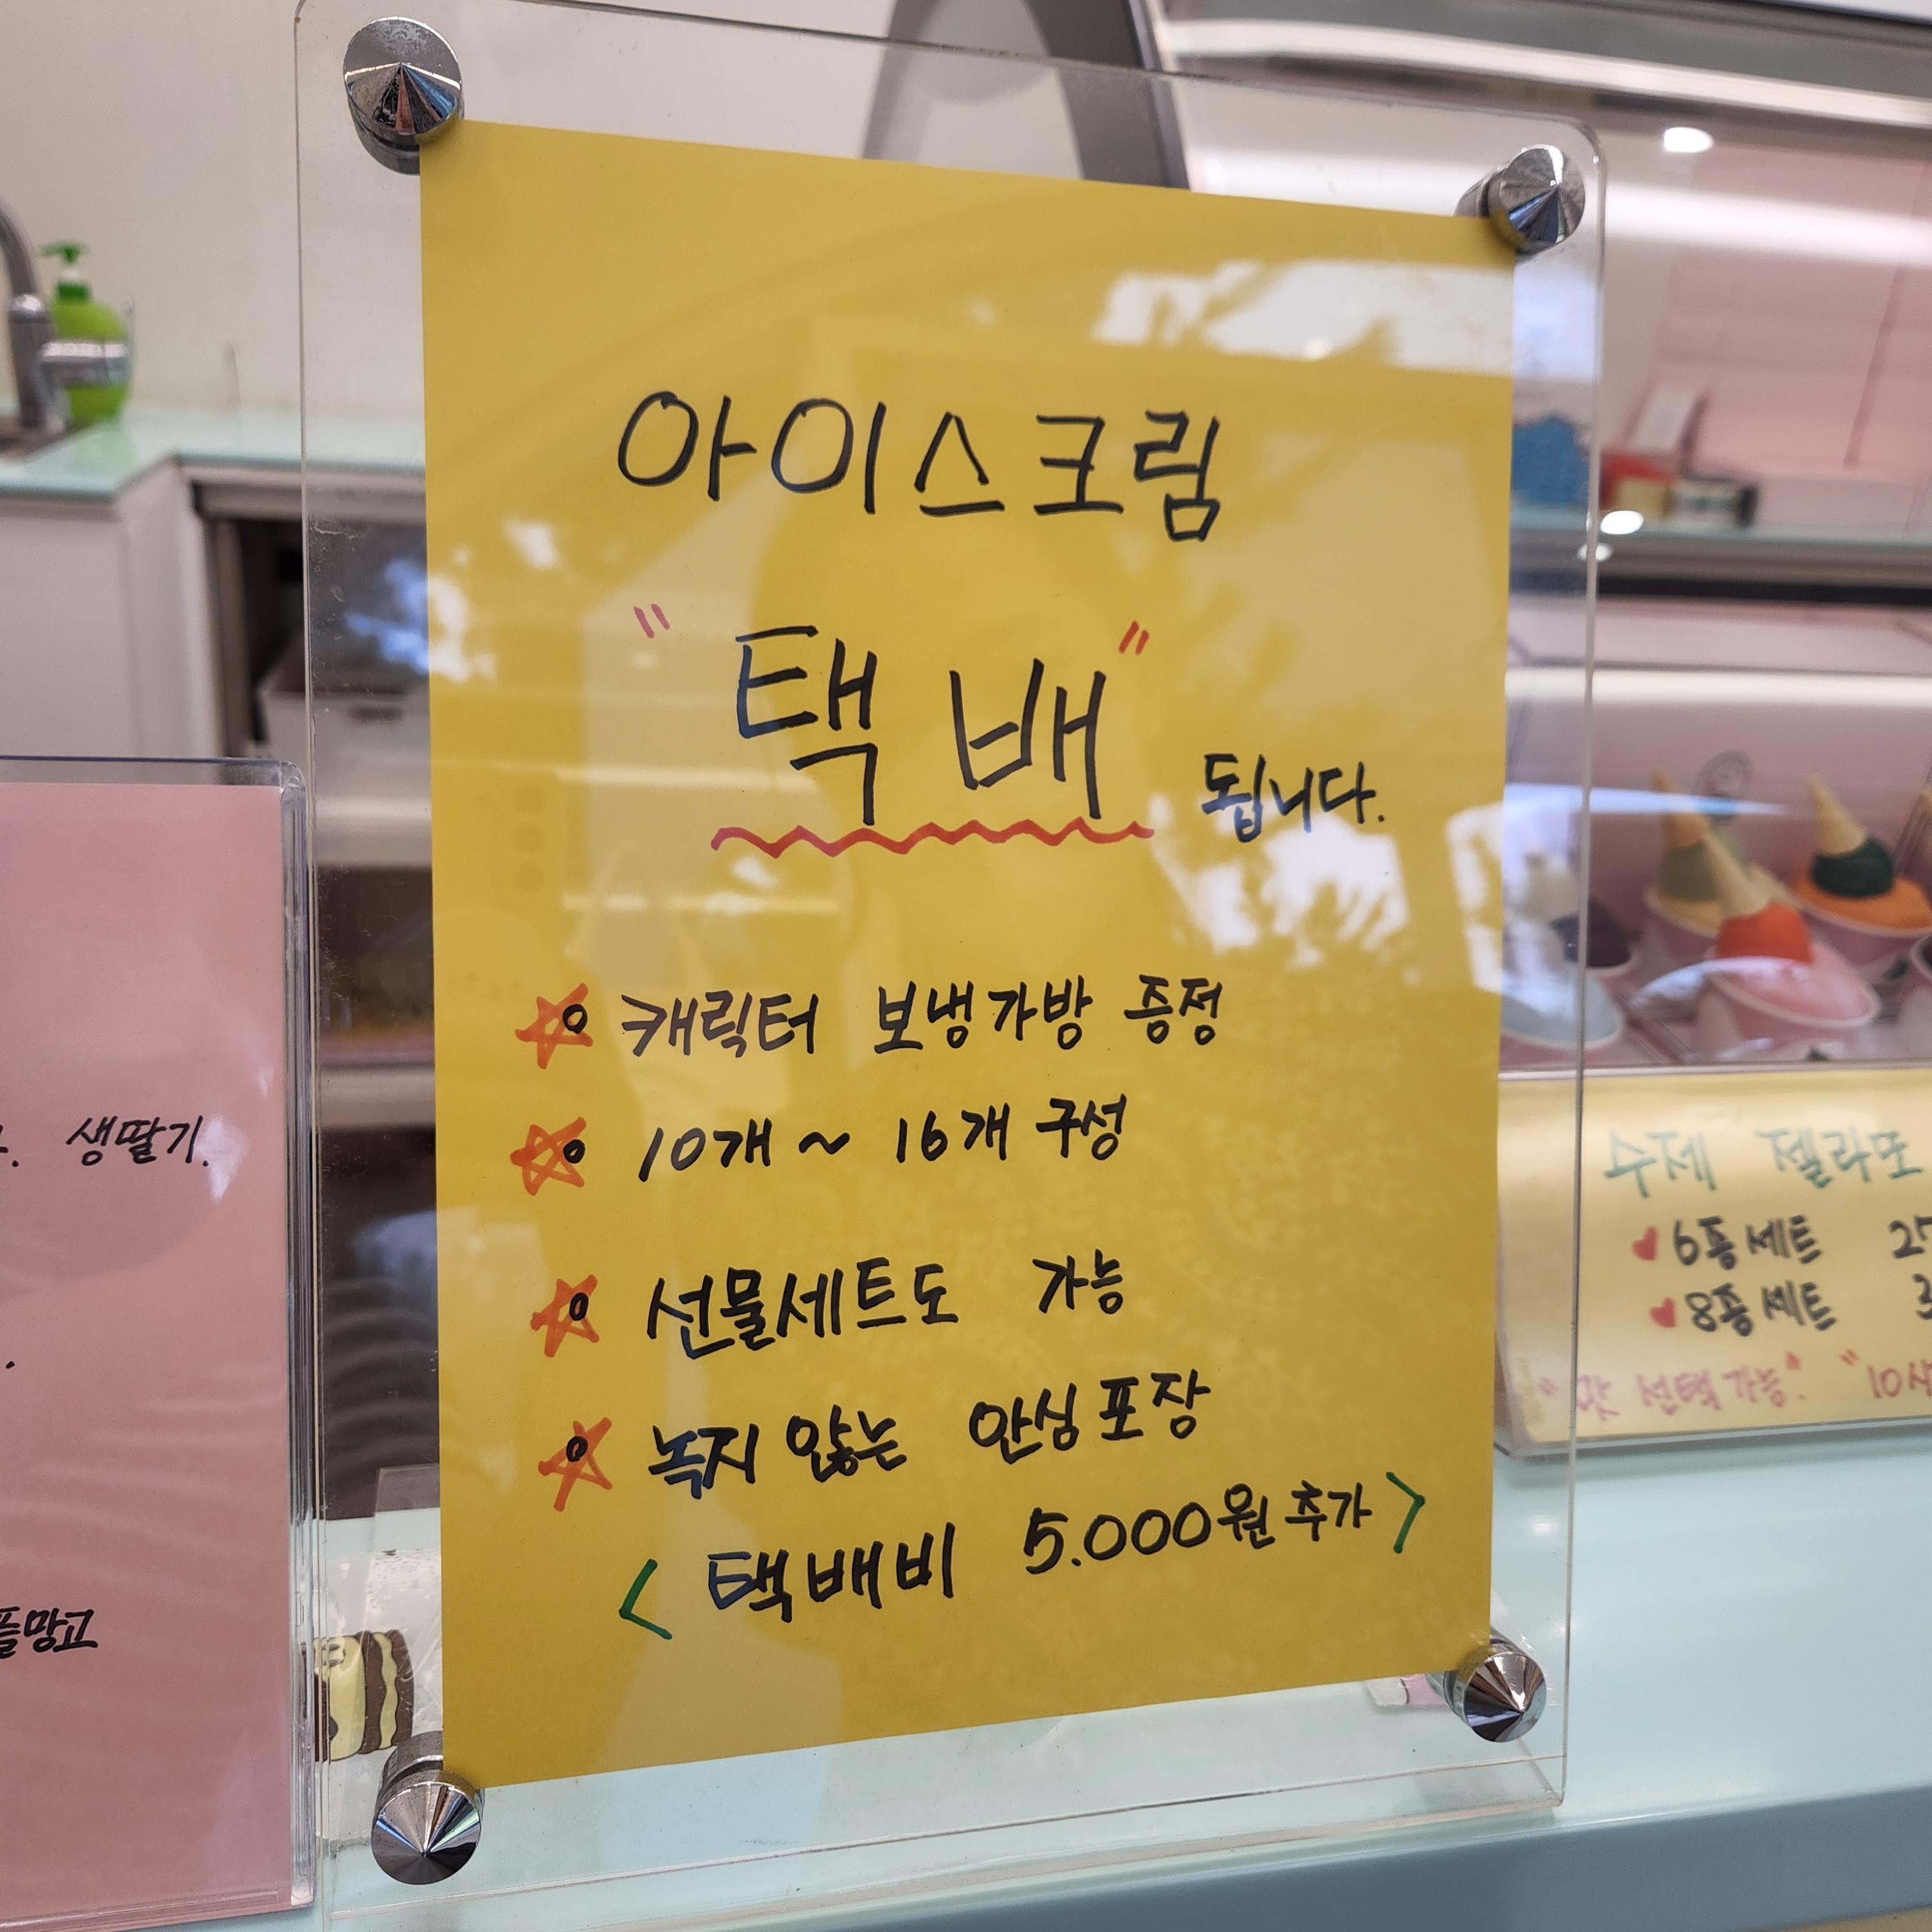 아이스크림
"택배" 됩니다.
캐릭터 보냉가방 증정
10개 ~ 16개 구성
선물세트도 가능
녹지 않는 안심포장
< 택배비 5.000원 추가 >
생딸기.
망고
수제 젤라또
♥ 6종세트
♥ 8종세트
"맛 선택가능"